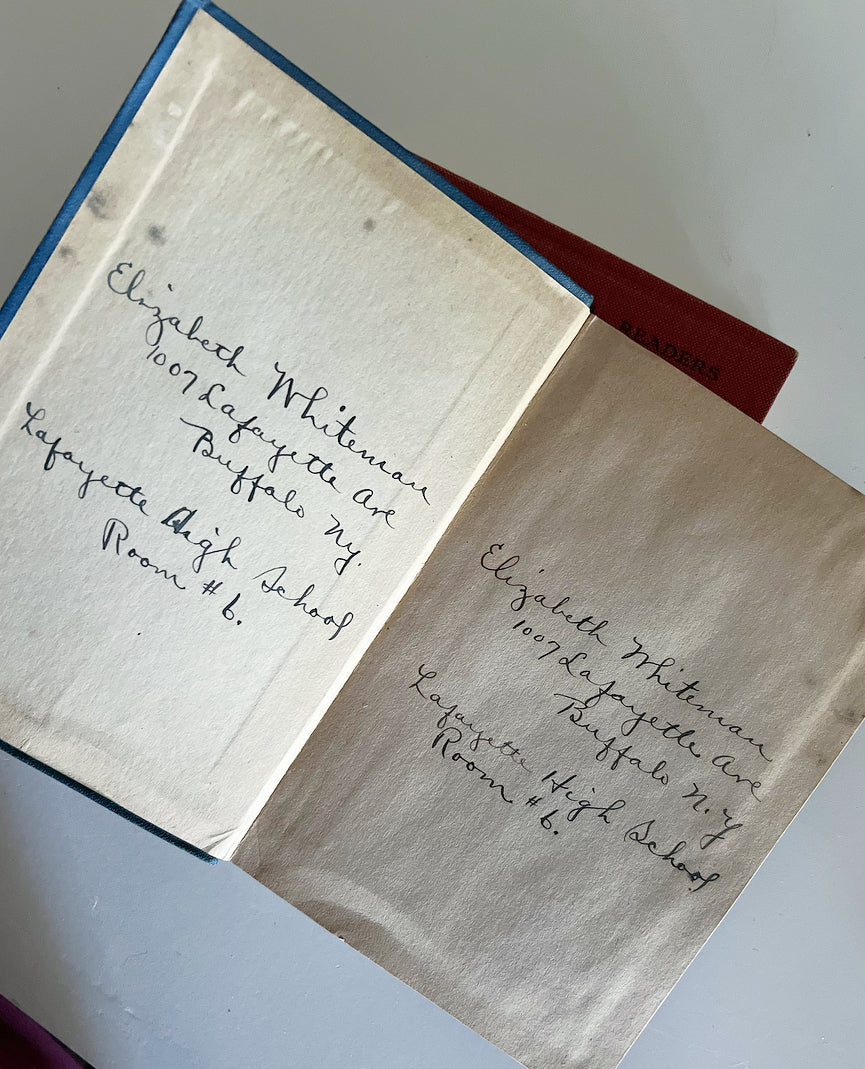 Elizabeth Whiteman
1007 Lafayette Ave
Buffalo Ny.
Lafayette High School
Room # 6.
READERS
Elizabeth Whiteman
1007 Lafayette Ave
Buffalo N.Y
Lafayette High School
Room # 6.